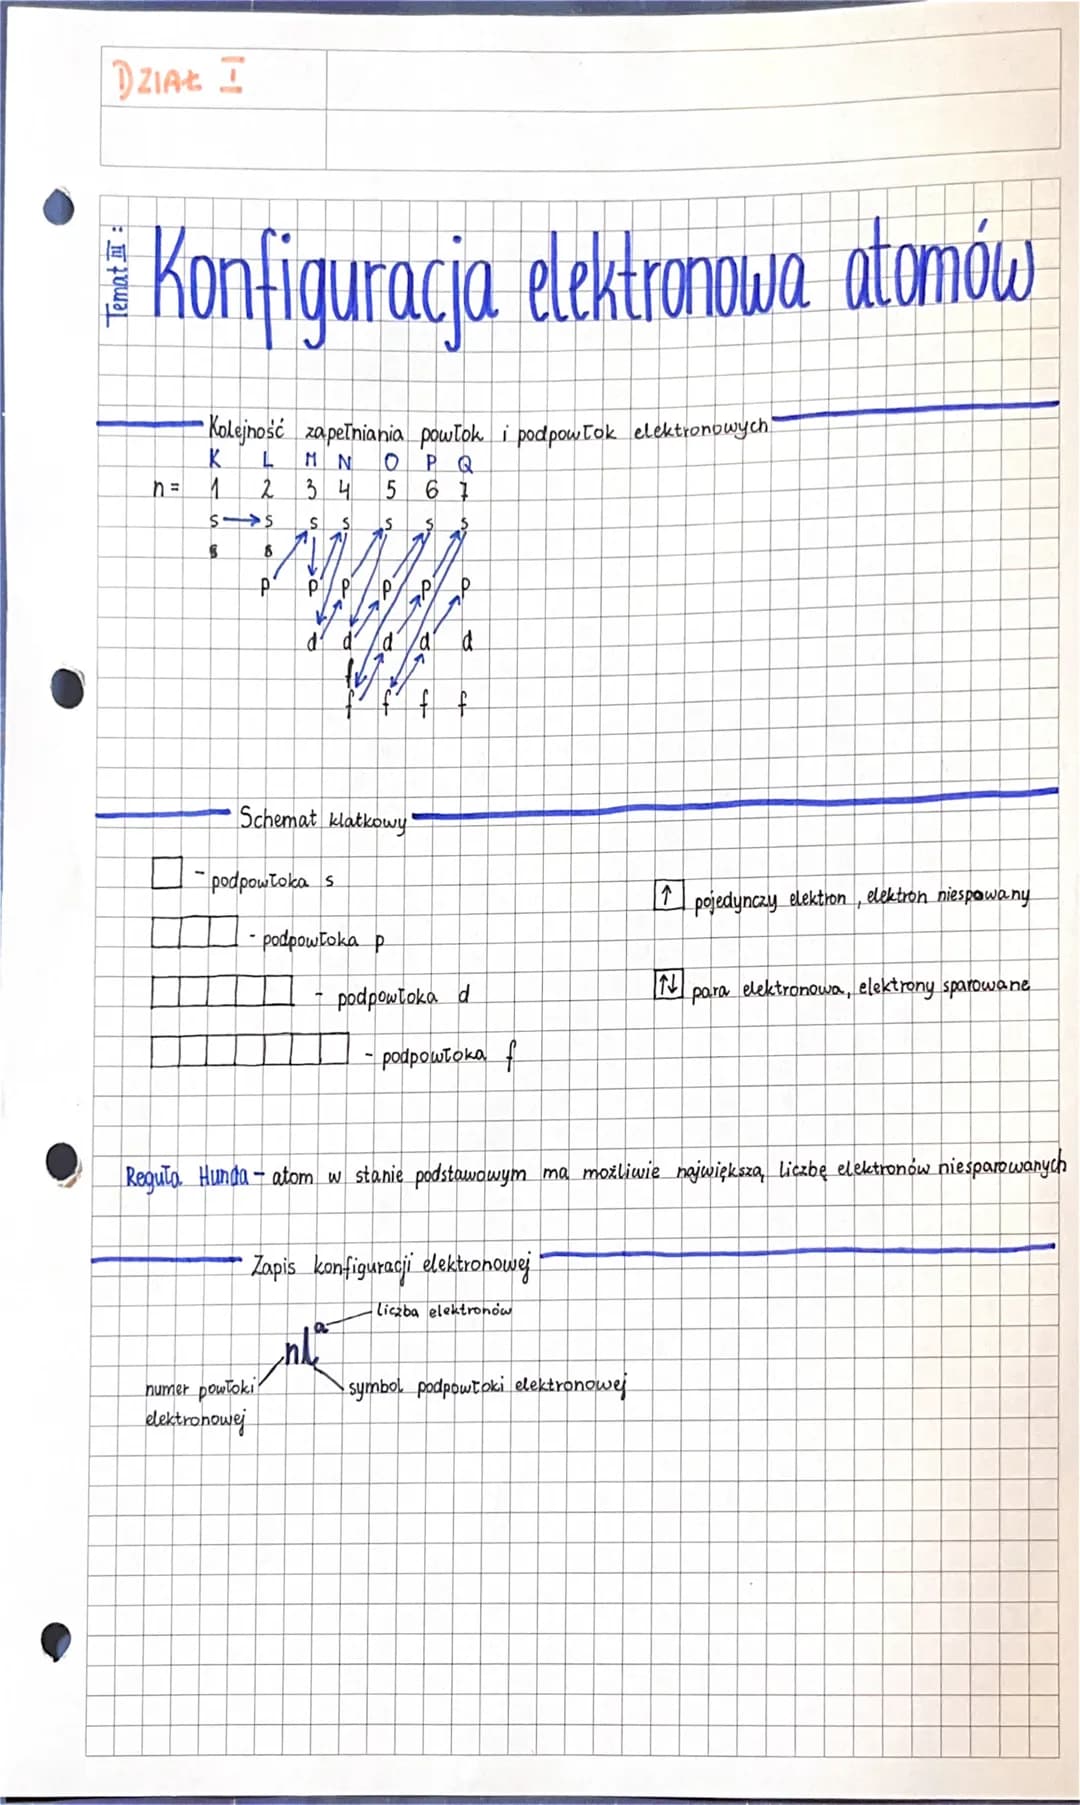 DZIAŁ I
Temat III:
Konfiguracja elektronowa atomów
Kolejność zapełniania powłok i podpowłok elektronowych
K L M N O P Q
n = 1 2 3 4 5 6 7
s s s s s s s
p p p p p p
d d d d d
f f f f
Schemat klatkowy
- podpowłoka s
↑ pojedynczy elektron, elektron niespowany
- podpowłoka p
- podpowłoka d
↑↓ para elektronowa, elektrony sparowane
- podpowłoka f
Reguła Hunda - atom w stanie podstawowym ma możliwie największą liczbę elektronów niesparowanych
Zapis konfiguracji elektronowej
liczba elektronów
nlᵃ
numer powłoki symbol podpowłoki elektronowej
elektronowej